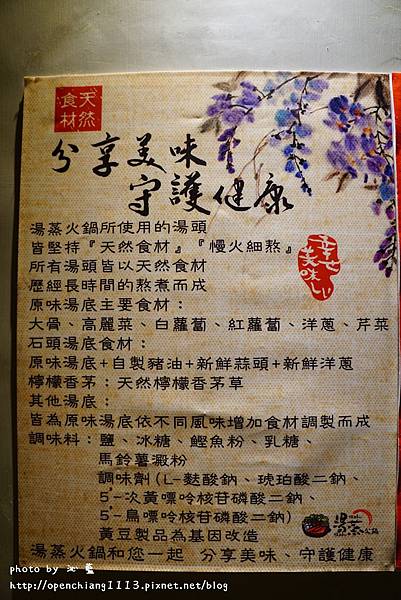 天然
食材
分享美味
守護健康
湯蒸火鍋所使用的湯頭
皆堅持『天然食材』『慢火細熬』
所有湯頭皆以天然食材
歷經長時間的熬煮而成
幸せ
美味しい
原味湯底主要食材:
大骨、高麗菜、白蘿蔔、紅蘿蔔、洋蔥、芹菜
石頭湯底食材:
原味湯底+自製豬油+新鮮蒜頭+新鮮洋蔥
檸檬香茅:天然檸檬香茅草
其他湯底:
皆為原味湯底依不同風味增加食材調製而成
調味料:鹽、冰糖、鰹魚粉、乳糖、
馬鈴薯澱粉
調味劑(L-麩酸鈉、琥珀酸二鈉、
5'-次黃嘌呤核苷磷酸二鈉、
5'-鳥嘌呤核苷磷酸二鈉)
黃豆製品為基因改造
湯蒸火鍋
湯蒸火鍋和您一起 分享美味、守護健康
photo by 沁藍
http://openchiang1113.pixnet.net/blog